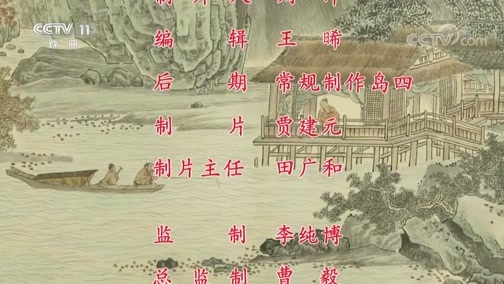 CCTV 11
戏曲
CCTV.com
编 辑 王 晞
后 期 常规制作岛四
制 片 贾建元
制片主任 田广和
监 制 李纯博
总 监 制 曹 毅